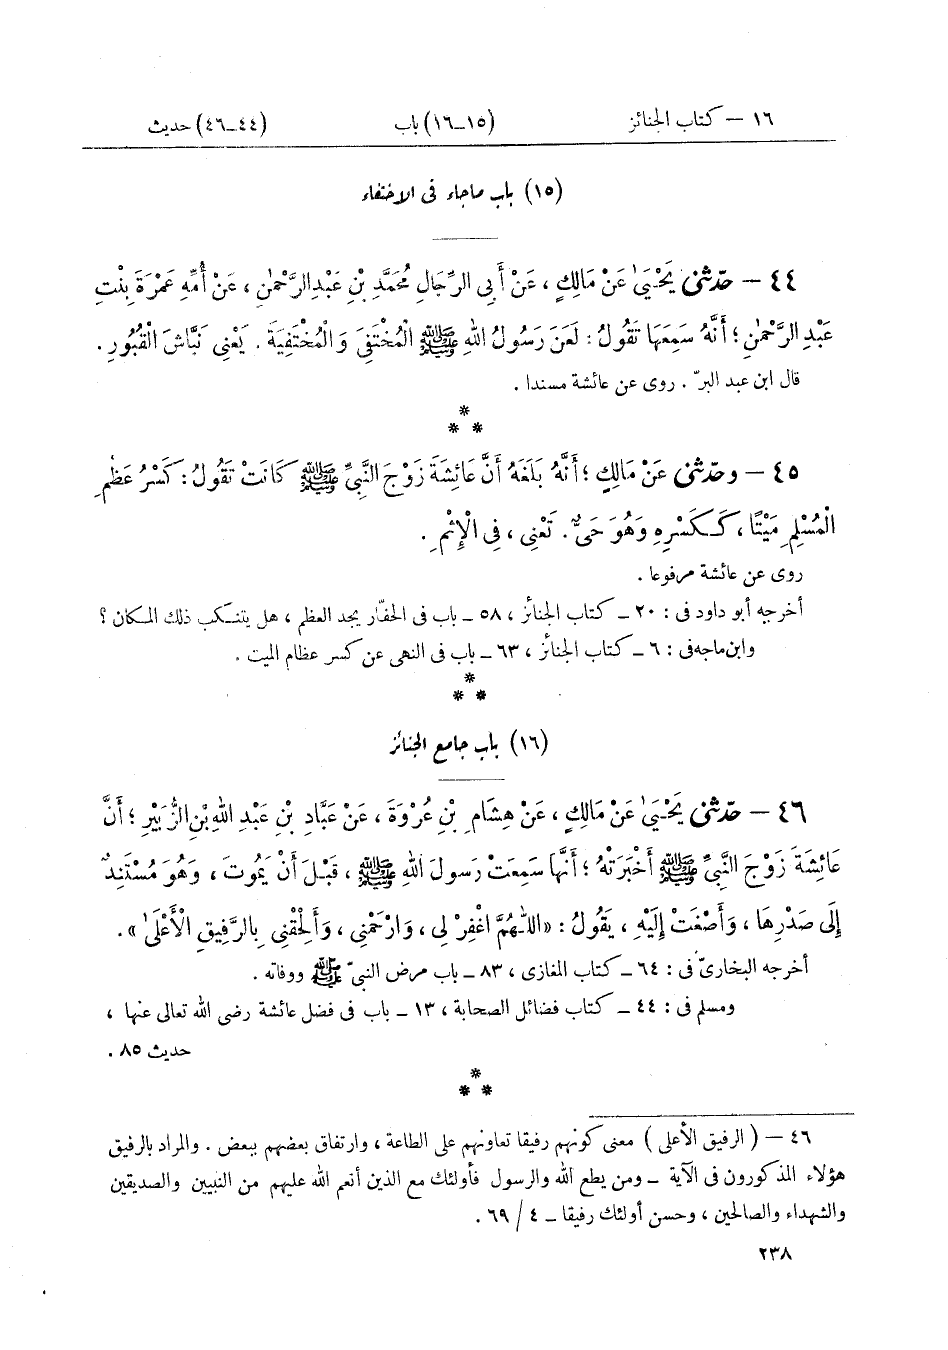 ١٦ – كتاب الجنائز (١٥–١٦) باب (٤٤–٤٦) حديث
(١٥) باب ماجاء فى الاختفاء
٤٤ – حدّثنى يَحْيَىٰ عَنْ مَالِكٍ ، عَنْ أَبِى الرِّجَالِ مُحَمَّدِ بْنِ عَبْدِ الرَّحْمٰنِ ، عَنْ أُمِّهِ عَمْرَةَ بِنْتِ
عَبْدِ الرَّحْمٰنِ ؛ أَنَّهُ سَمِعَهَا تَقُولُ : لَعَنَ رَسُولُ اللهِ ﷺ الْمُخْتَفِىَ وَالْمُخْتَفِيَةَ . يَعْنِى نَبَّاشَ الْقُبُورِ .
قال ابن عبد البرّ . روى عن عائشة مسندا .
*
* *
٤٥ – وحدّثنى عَنْ مَالِكٍ ؛ أَنَّهُ بَلَغَهُ أَنَّ عَائِشَةَ زَوْجَ النَّبِىِّ ﷺ كَانَتْ تَقُولُ : كَسْرُ عَظْمِ
الْمُسْلِمِ مَيْتًا ، كَكَسْرِهِ وَهُوَ حَىٌّ . تَعْنِى ، فِى الْإِثْمِ .
روى عن عائشة مرفوعا .
أخرجه أبو داود فى : ٢٠ – كتاب الجنائز ، ٥٨ – باب فى الحفّار يجد العظم ، هل يتنكب ذلك المكان ؟
وابن ماجه فى : ٦ – كتاب الجنائز ، ٦٣ – باب فى النهى عن كسر عظام الميت .
*
* *
(١٦) باب جامع الجنائز
٤٦ – حدّثنى يَحْيَىٰ عَنْ مَالِكٍ ، عَنْ هِشَامِ بْنِ عُرْوَةَ ، عَنْ عَبَّادِ بْنِ عَبْدِ اللهِ بْنِ الزُّبَيْرِ ؛ أَنَّ
عَائِشَةَ زَوْجَ النَّبِىِّ ﷺ أَخْبَرَتْهُ ؛ أَنَّهَا سَمِعَتْ رَسولَ اللهِ ﷺ ، قَبْلَ أَنْ يَمُوتَ ، وَهُوَ مُسْتَنِدٌ
إِلَى صَدْرِهَا ، وَأَصْغَتْ إِلَيْهِ ، يَقُولُ : «اللّٰهُمَّ اغْفِرْ لِى ، وَارْحَمْنِى ، وَأَلْحِقْنِى بِالرَّفِيقِ الْأَعْلَىٰ» .
أخرجه البخارىّ فى : ٦٤ – كتاب المغازى ، ٨٣ – باب مرض النبىّ ﷺ ووفاته .
ومسلم فى : ٤٤ – كتاب فضائل الصحابة ، ١٣ – باب فى فضل عائشة رضى الله تعالى عنها ،
حديث ٨٥ .
*
* *
٤٦ – ( الرفيق الأعلى ) معنى كونهم رفيقا تعاونهم على الطاعة ، وارتفاق بعضهم ببعض . والمراد بالرفيق
هؤلاء المذكورون فى الآية – ومن يطع الله والرسول فأولئك مع الذين أنعم الله عليهم من النبيين والصديقين
والشهداء والصالحين ، وحسن أولئك رفيقا – ٤ / ٦٩ .
٢٣٨